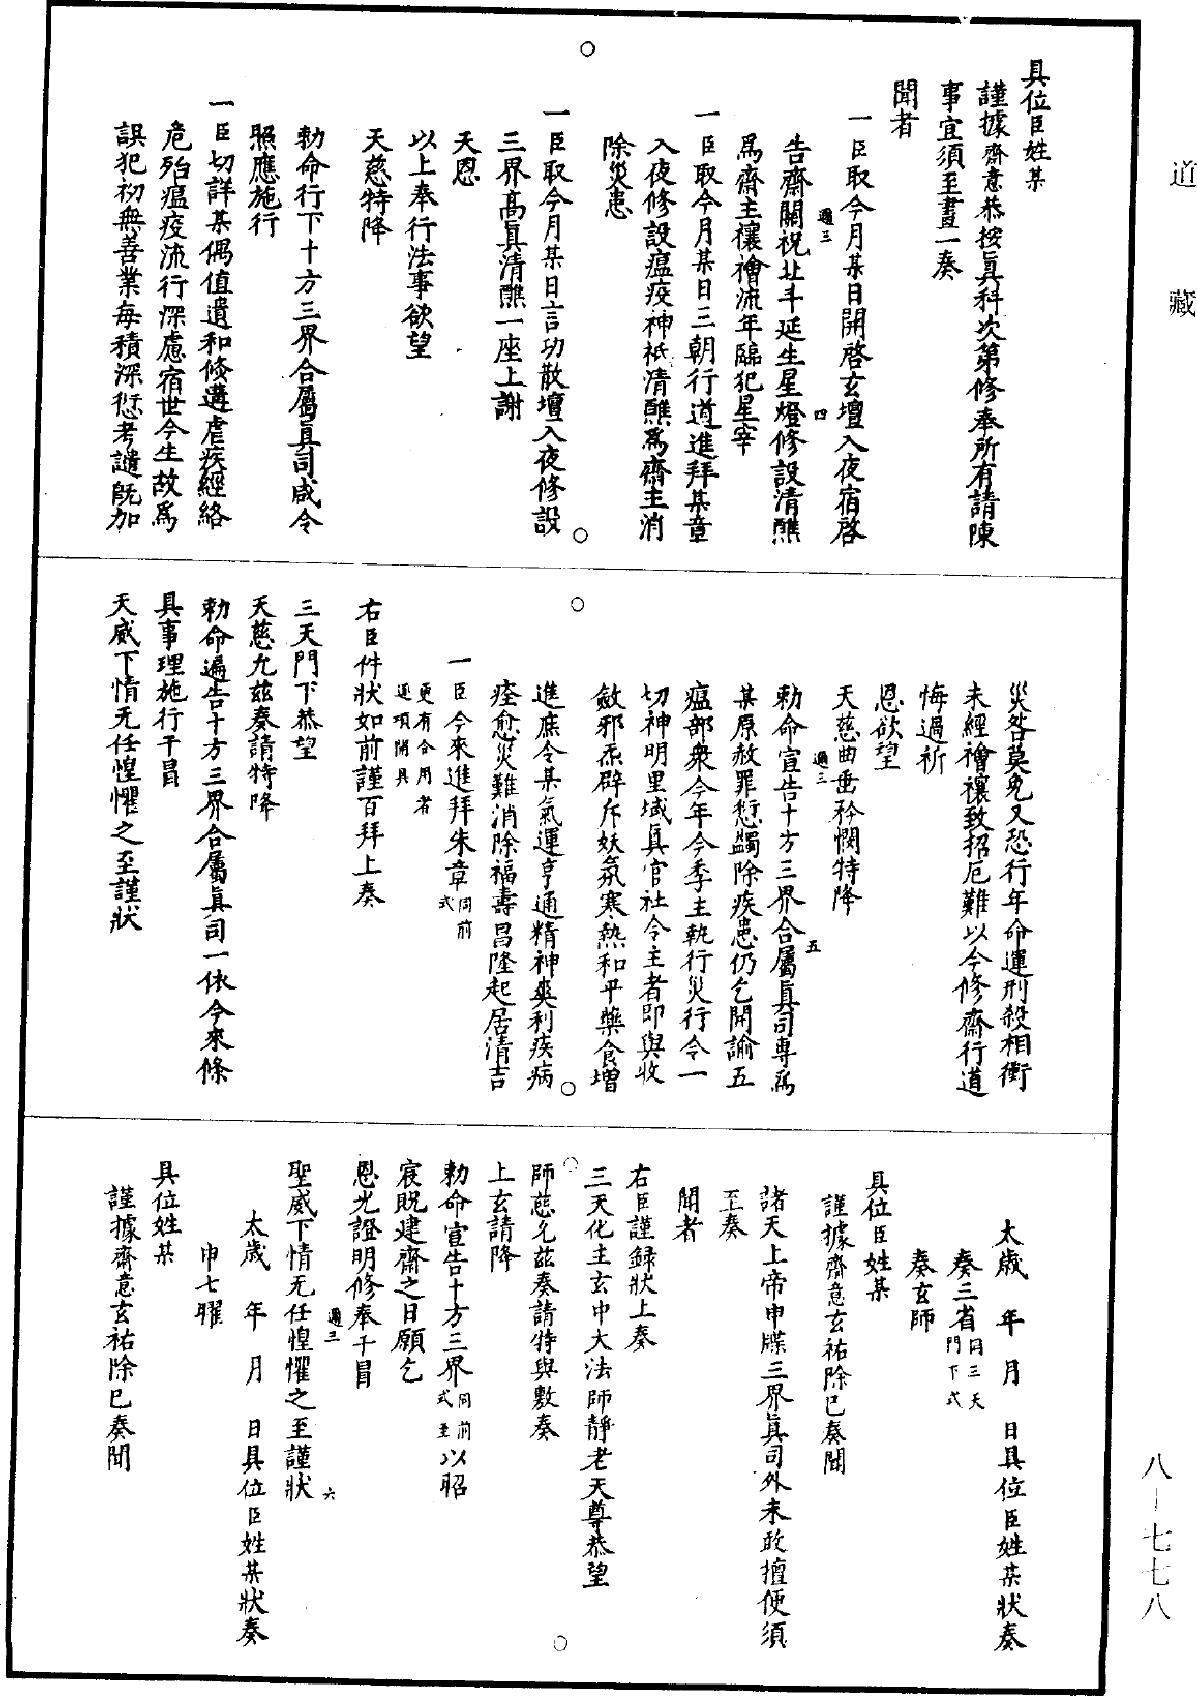 道藏
具位臣姓某
謹據齋意恭按眞科次第修奉所有請陳
事宜須至畫一奏
聞者
一臣取今月某日開啓玄壇入夜宿啓
告齋關祝北斗延生星燈修設清醮
爲齋主禳禬流年臨犯星宰
一臣取今月某日三朝行道進拜某章
入夜修設瘟疫神祇清醮爲齋主消
除災患
一臣取今月某日言功散壇入夜修設
三界高眞清醮一座上謝
天恩
以上奉行法事欲望
天慈特降
勑命行下十方三界合屬眞司咸令
照應施行
一臣切詳某偶值遺和倏遘虐疾經絡
危殆瘟疫流行深慮宿世今生故爲
誤犯初無善業每積深愆考譴旣加
災咎莫免又恐行年命運刑殺相衝
未經禬禳致招厄難以今修齋行道
悔過祈
恩欲望
天慈曲垂矜憫特降
勑命宣告十方三界合屬眞司專爲
某原赦罪愆蠲除疾患仍乞開諭五
瘟部衆今年今季主執行災行令一
切神明里域眞官社令主者卽與收
斂邪炁辟斥妖氛寒熱和平藥食增
進庶令某氣運亨通精神爽利疾病
痊愈災難消除福壽昌隆起居清吉
一臣今來進拜朱章同前式
更有合用者
逐項開具
右臣件狀如前謹百拜上奏
三天門下恭望
天慈允茲奏請特降
勑命遍告十方三界合屬眞司一依今來條
具事理施行干冒
天威下情无任惶懼之至謹狀
太歲 年 月 日具位臣姓某狀奏
奏三省同三天門下式
奏玄師
具位臣姓某
謹據齋意玄祐除已奏聞
諸天上帝申牒三界眞司外未敢擅便須
至奏
聞者
右臣謹録狀上奏
三天化主玄中大法師靜老天尊恭望
師慈允茲奏請特與敷奏
上玄請降
勑命宣告十方三界同前式至以昭
寂貺建齋之日願乞
恩光證明修奉干冒
聖威下情无任惶懼之至謹狀
太歲 年 月 日具位臣姓某狀奏
申七曜
具位姓某
謹據齋意玄祐除已奏聞
週三 四
週三 五
週三 六
八—七七八